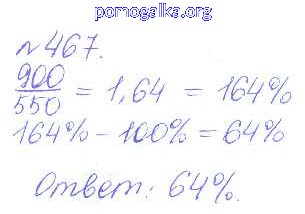 pomogalka.org
№467.
900/550 = 1,64 = 164%
164% - 100% = 64%
Ответ: 64%.